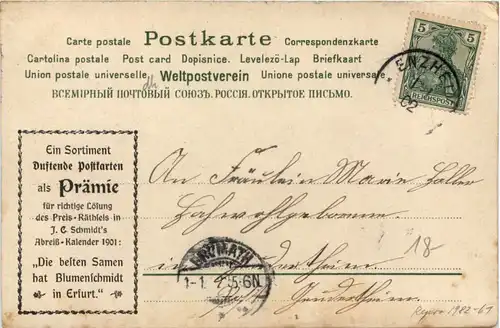 Carte postale Postkarte Correspondenzkarte
Cartolina postale Post card Dopisnice. Levelezö-Lap Briefkaart
Union postale universelle. Weltpostverein Unione postale universale.
ВСЕМІРНЫЙ ПОЧТОВЫЙ СОЮЗЪ. РОССІЯ. ОТКРЫТОЕ ПИСЬМО.
5 5
REICHSPOST
ENZHEI
02
Ein Sortiment
Duftende Postkarten
als Prämie
für richtige Lösung
des Preis-Räthsels in
J. C. Schmidt's
Abreiß-Kalender 1901:
„Die besten Samen
hat Blumenschmidt
in Erfurt."
An Fräulein Marie Haller
Hochwohlgeboren
in Geudertheim
18
BRUMATH
1-1. 5-6N
Post Geudertheim.